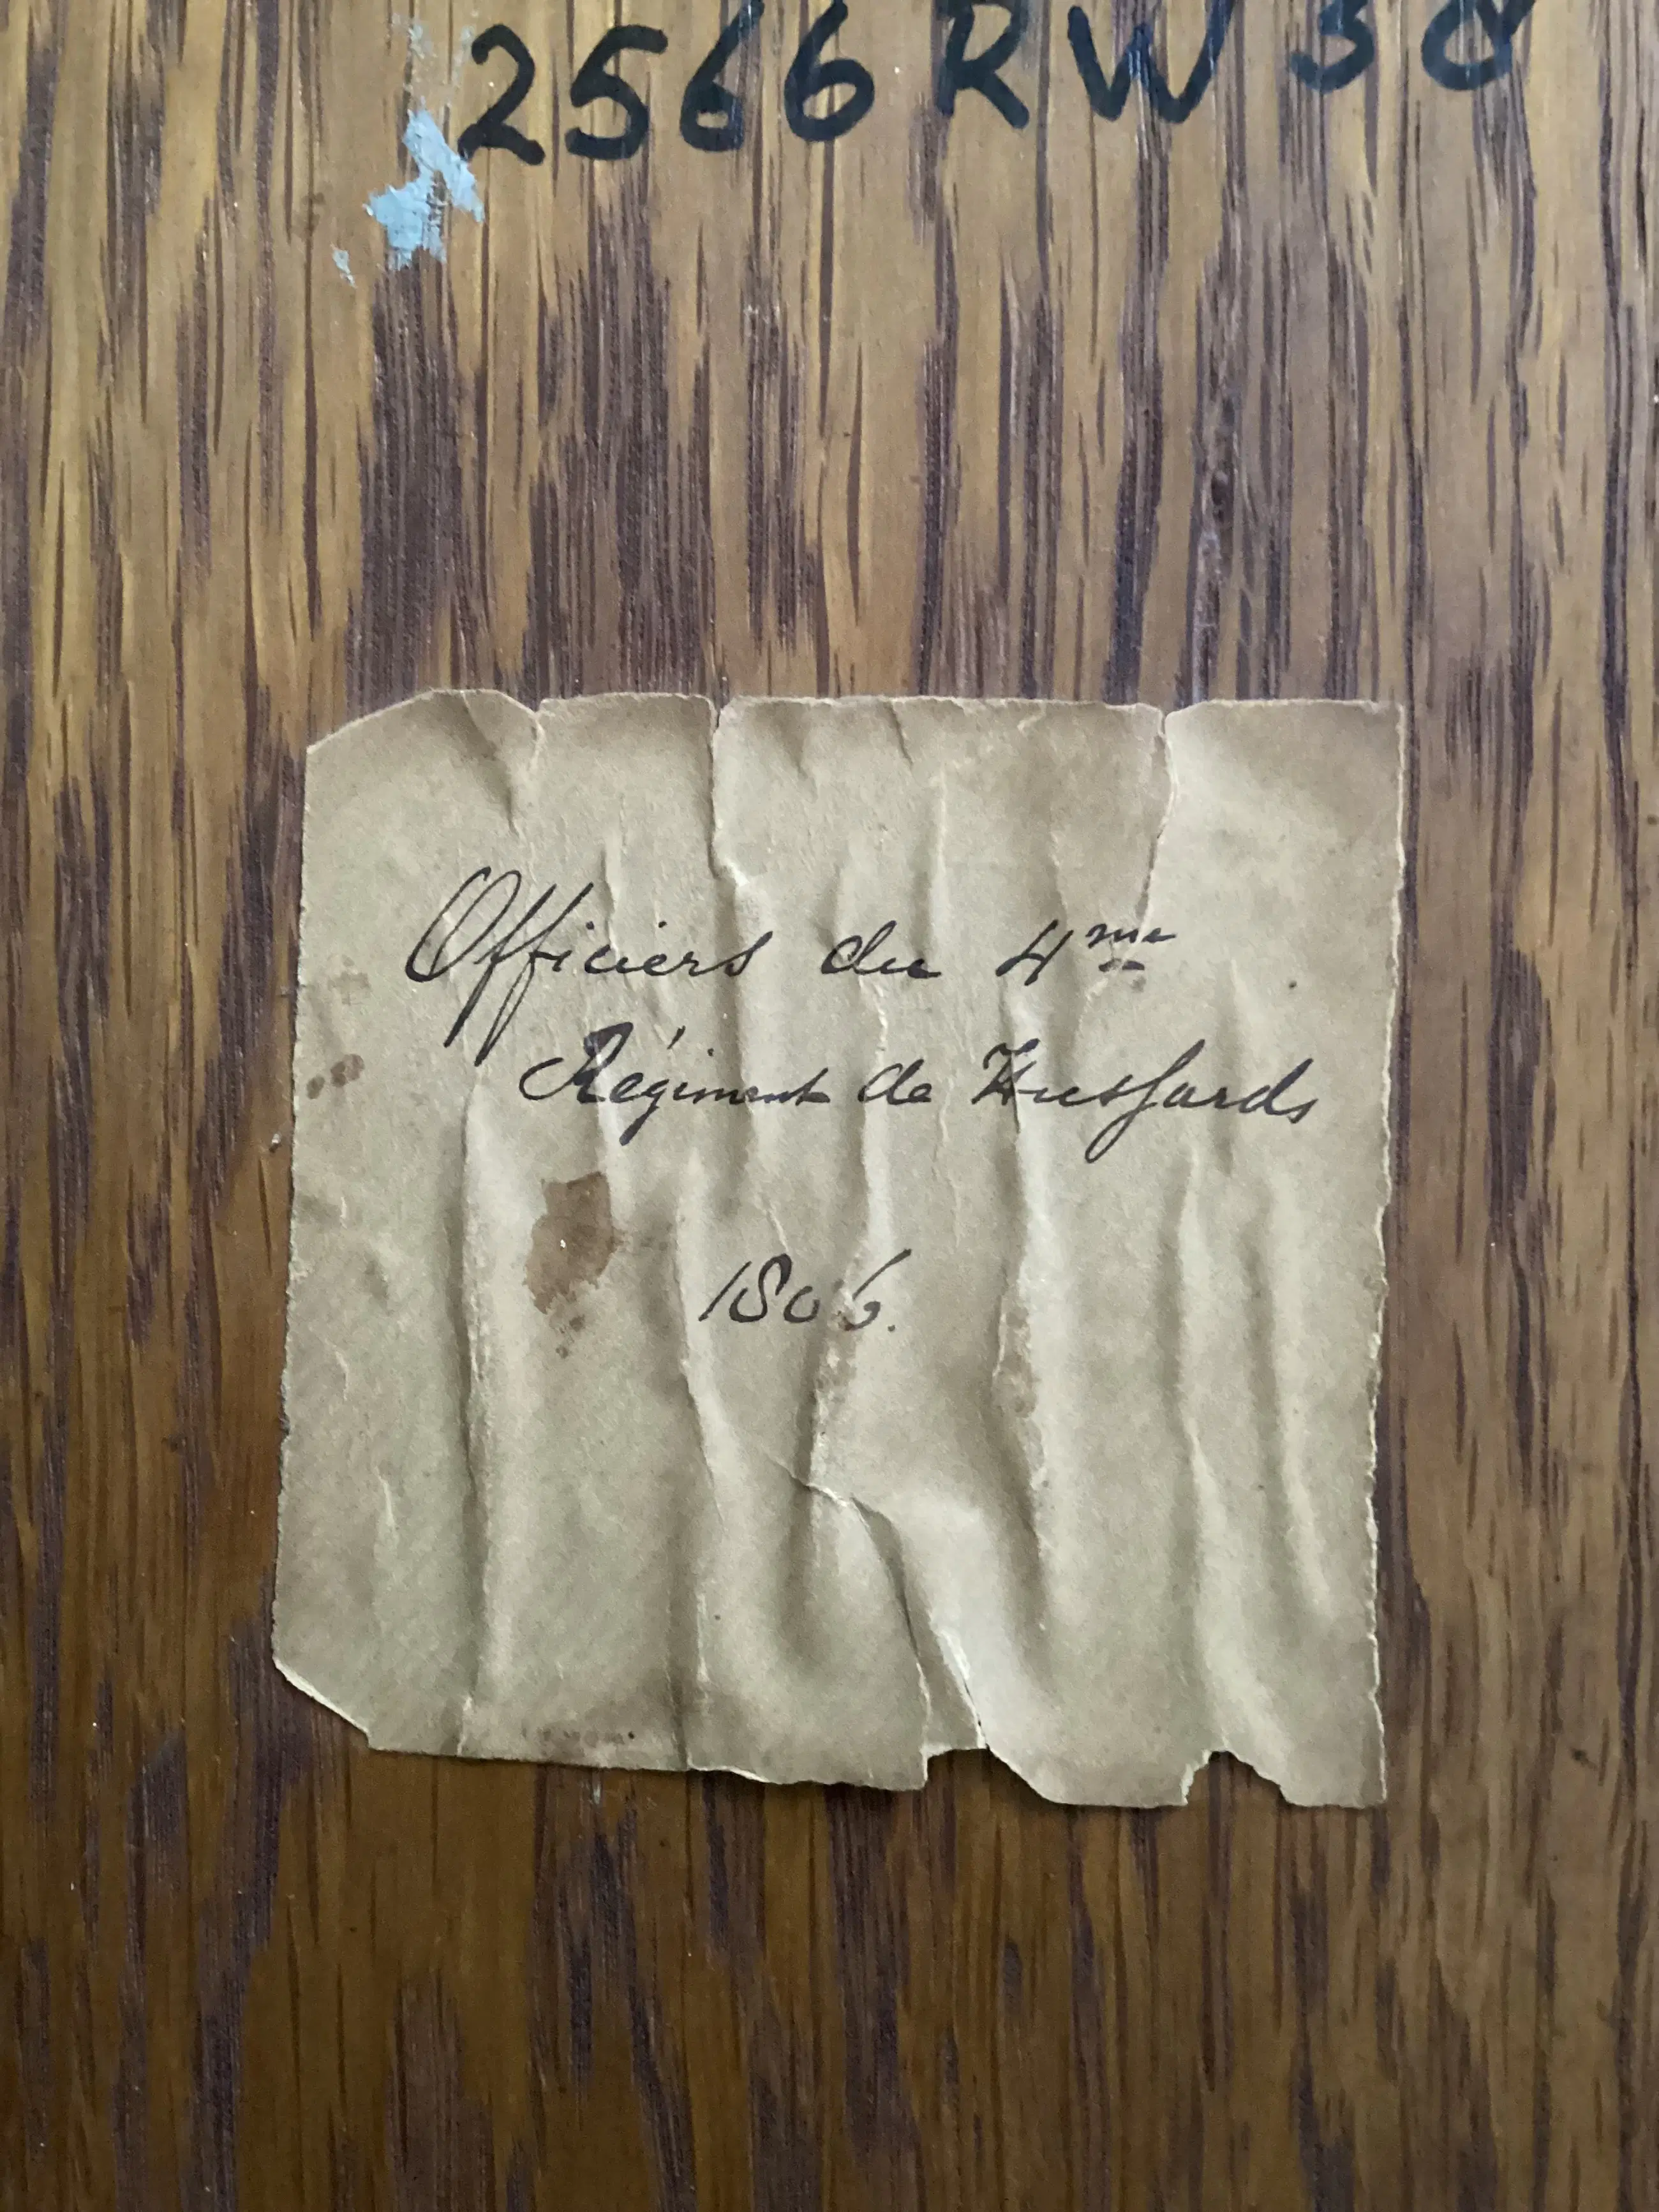 2566 RW 38
Officiers du 4me
Régiment de Hussards
1806.